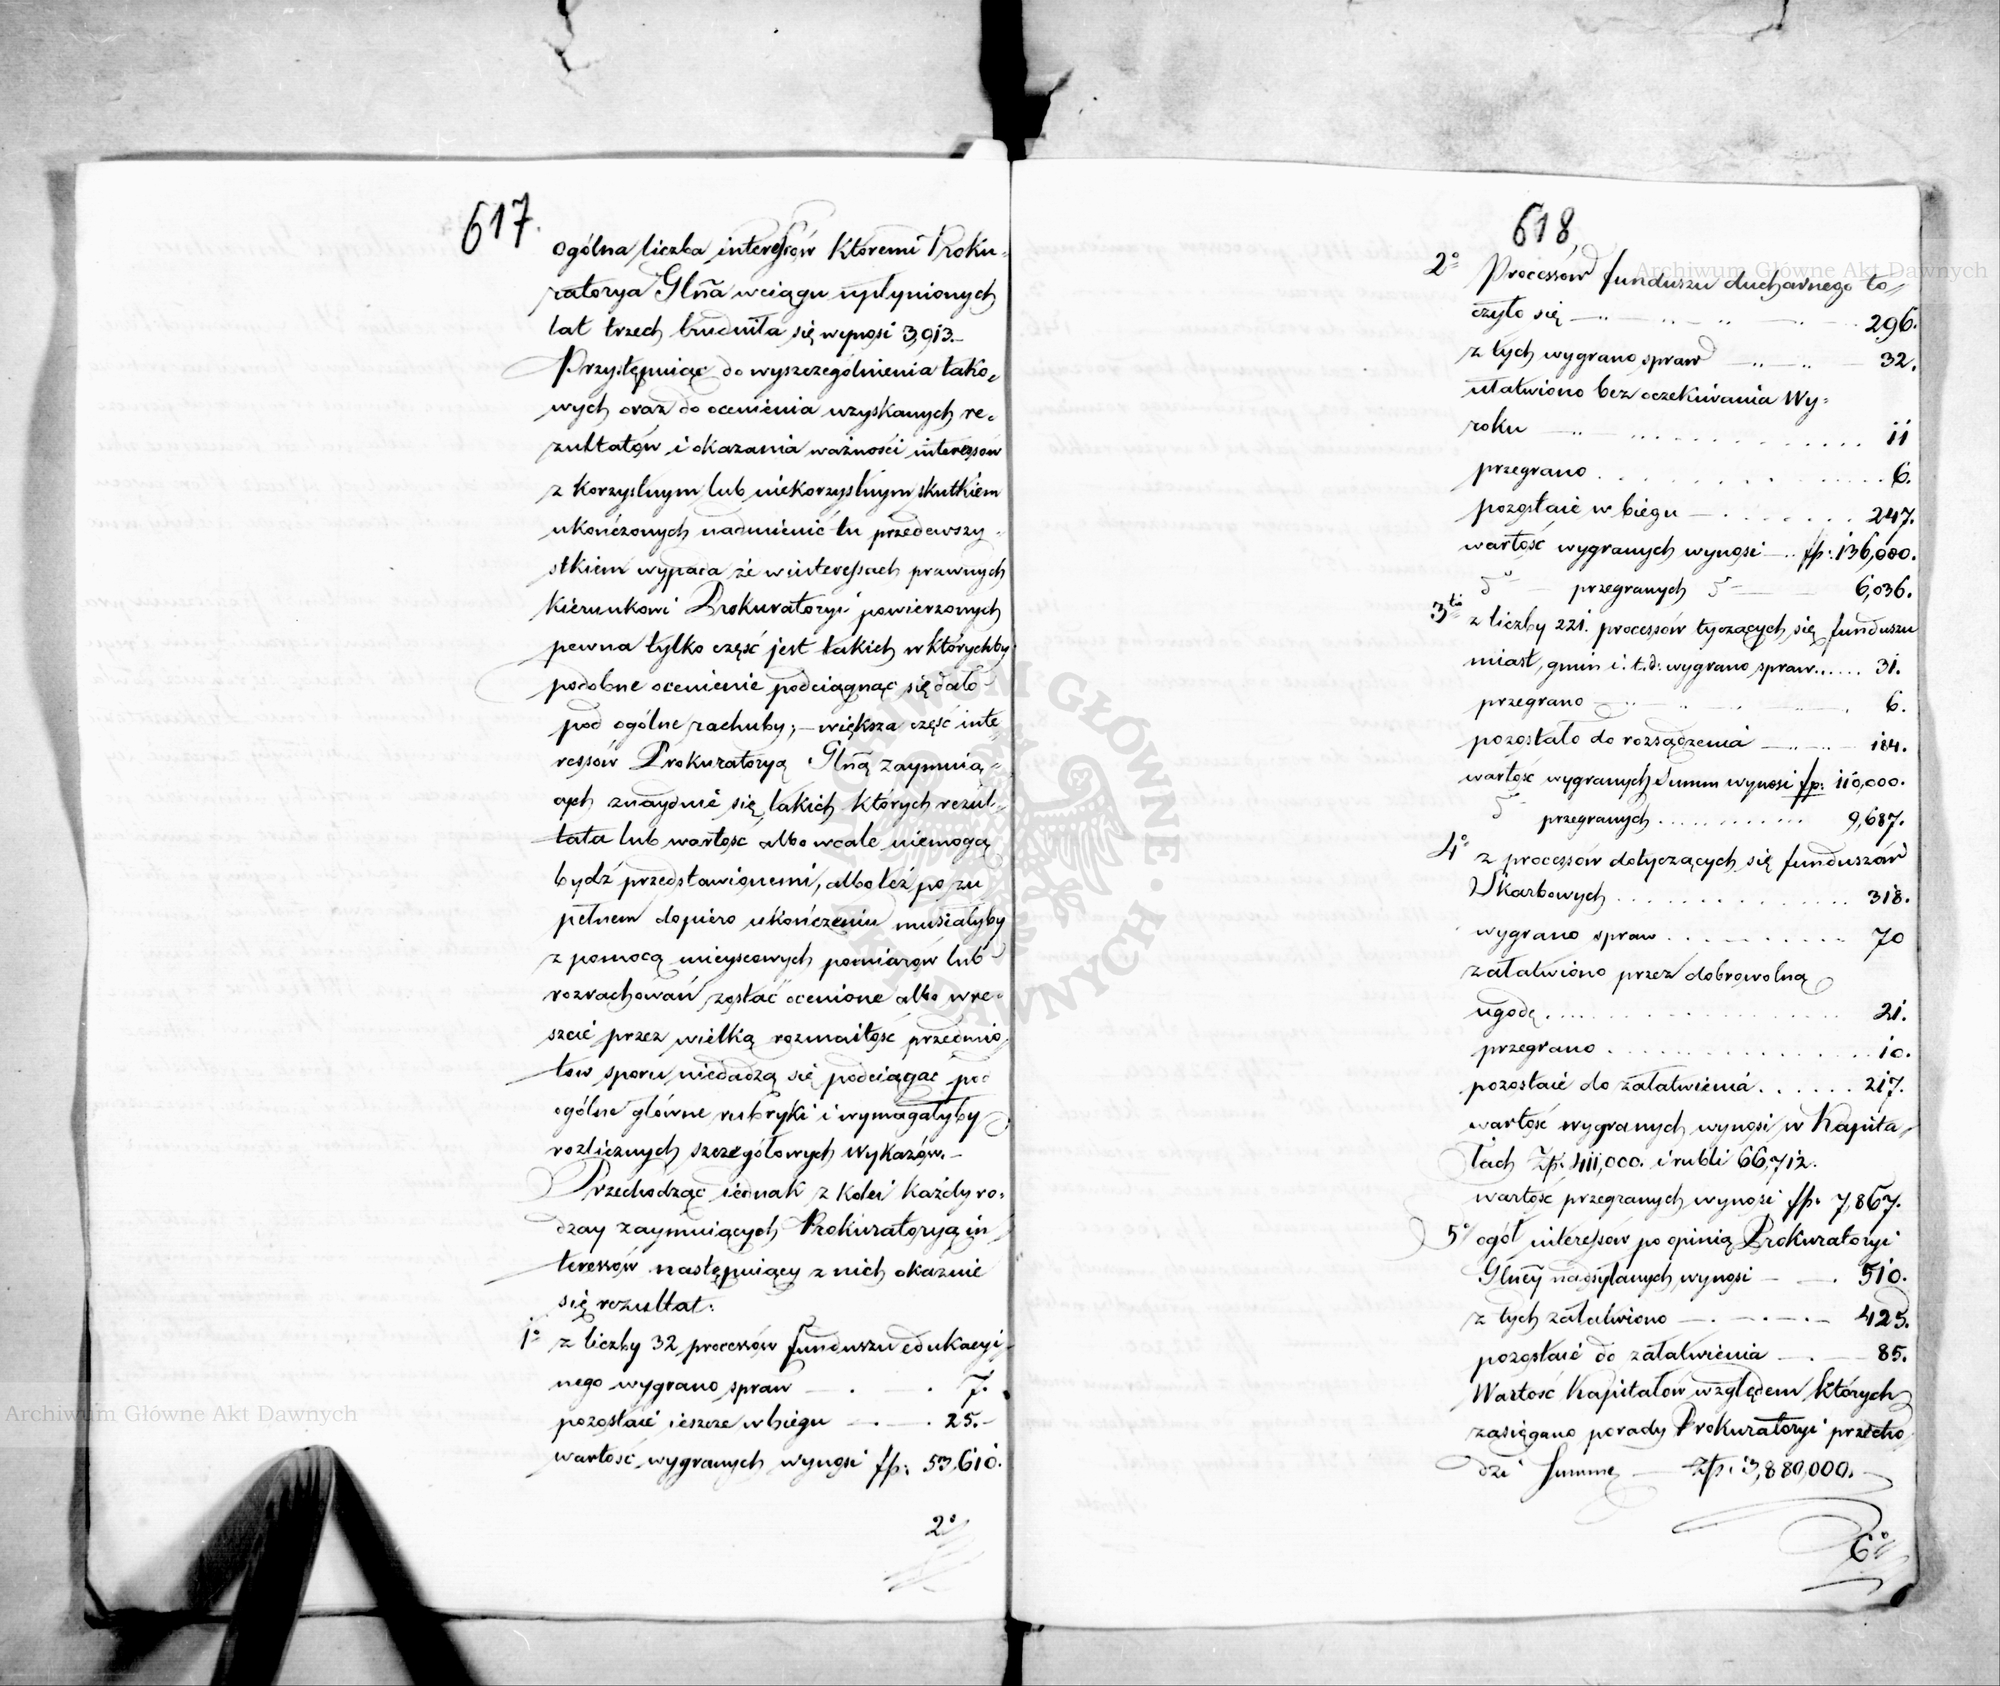 617.
ogólna liczba interessów ktoremi Proku-
ratorya Glña w ciągu upłynionych
lat trzech trudniła się wynosi 3,913.-
Przystępuiąc do wyszczególnienia tako-
wych oraz do ocenienia uzyskanych re-
zultatów i okazania ważności interessów
z korzystnym lub niekorzystnym skutkiem
ukończonych nadmienić tu przedewszy-
stkiem wypada że w interessach prawnych
kierunkowi Prokuratoryi powierzonych
pewna tylko część jest takich w którychby
podobne ocenienie podciągnąć się dało
pod ogólne rachuby; – większa część inte-
ressów Prokuratoryą Glñą zaymuią-
cych znayduie się takich których rezul-
tata lub wartość albo wcale niemogą
bydź przedstawionemi, albo też po zu
pełnem dopiero ukończeniu musiałyby
z pomocą mieyscowych pomiarów lub
rozrachowań zostać ocenione albo wre-
szcie przez wielką rozmaitość przedmio-
tow sporu niedadzą się podciągać pod
ogólne główne rubryki i wymagałyby
rozlicznych szczegółowych wykazów.-
Przechodząc iednak z kolei każdy ro-
dzay zaymuiących Prokuratoryą in
teressów następuiący z nich okazuie
się rezultat:
1º z liczby 32 processów funduszu edukacyi-
nego wygrano spraw — . — . 7.
pozostaie ieszcze w biegu — . — . 25.-
wartość wygranych wynosi fp: 53,610.
2º
618,
2º Processów funduszu duchownego to-
czyło się — .. — .. — .. — 296.
z tych wygrano spraw — .. — .. — 32.
ułatwiono bez oczekiwania Wy-
roku — .. — .. . . . . . . . . . . 11
przegrano . . . . . . . . . . . . 6.
pozostaie w biegu — . . . . . . . 247.
wartość wygranych wynosi — .. fp: 136,000.
dº — przegranych dº — 6,036.
3tio z liczby 221. processów tyczących się funduszu
miast, gmin i. t. d: wygrano spraw...... 31.
przegrano — .. — .. — . 6.
pozostało do rozsądzenia — .. — .. — 184.
wartość wygranych Summ wynosi fp: 110,000.
dº przegranych . . . . . . . . . . . 9,687.
4º z processów dotyczących się funduszów
Skarbowych . . . . . . . . . . . . 318.
wygrano spraw . . . . . . . . . . 70
załatwiono przez dobrowolną
ugodę . . . . . . . . . . . . . . 21.
przegrano . . . . . . . . . . . . 10.
pozostaie do załatwienia . . . . . . 217.
wartość wygranych wynosi w Kapita-
łach Zp: 411,000. i rubli 66,712.
wartość przegranych wynosi fp: 7,867.
5º ogół interessów po opinią Prokuratoryi
Glñey nadsyłanych wynosi — — . 510.
z tych załatwiono — . — . — . — 425.
pozostaie do załatwienia — . — 85.
Wartość Kapitałów względem których
zasięgano porady Prokuratoryi przecho
dzi Summę — Zp: 3,880,000.-
6º
Archiwum Główne Akt Dawnych
Archiwum Główne Akt Dawnych
ARCHIWUM GŁÓWNE AKT DAWNYCH